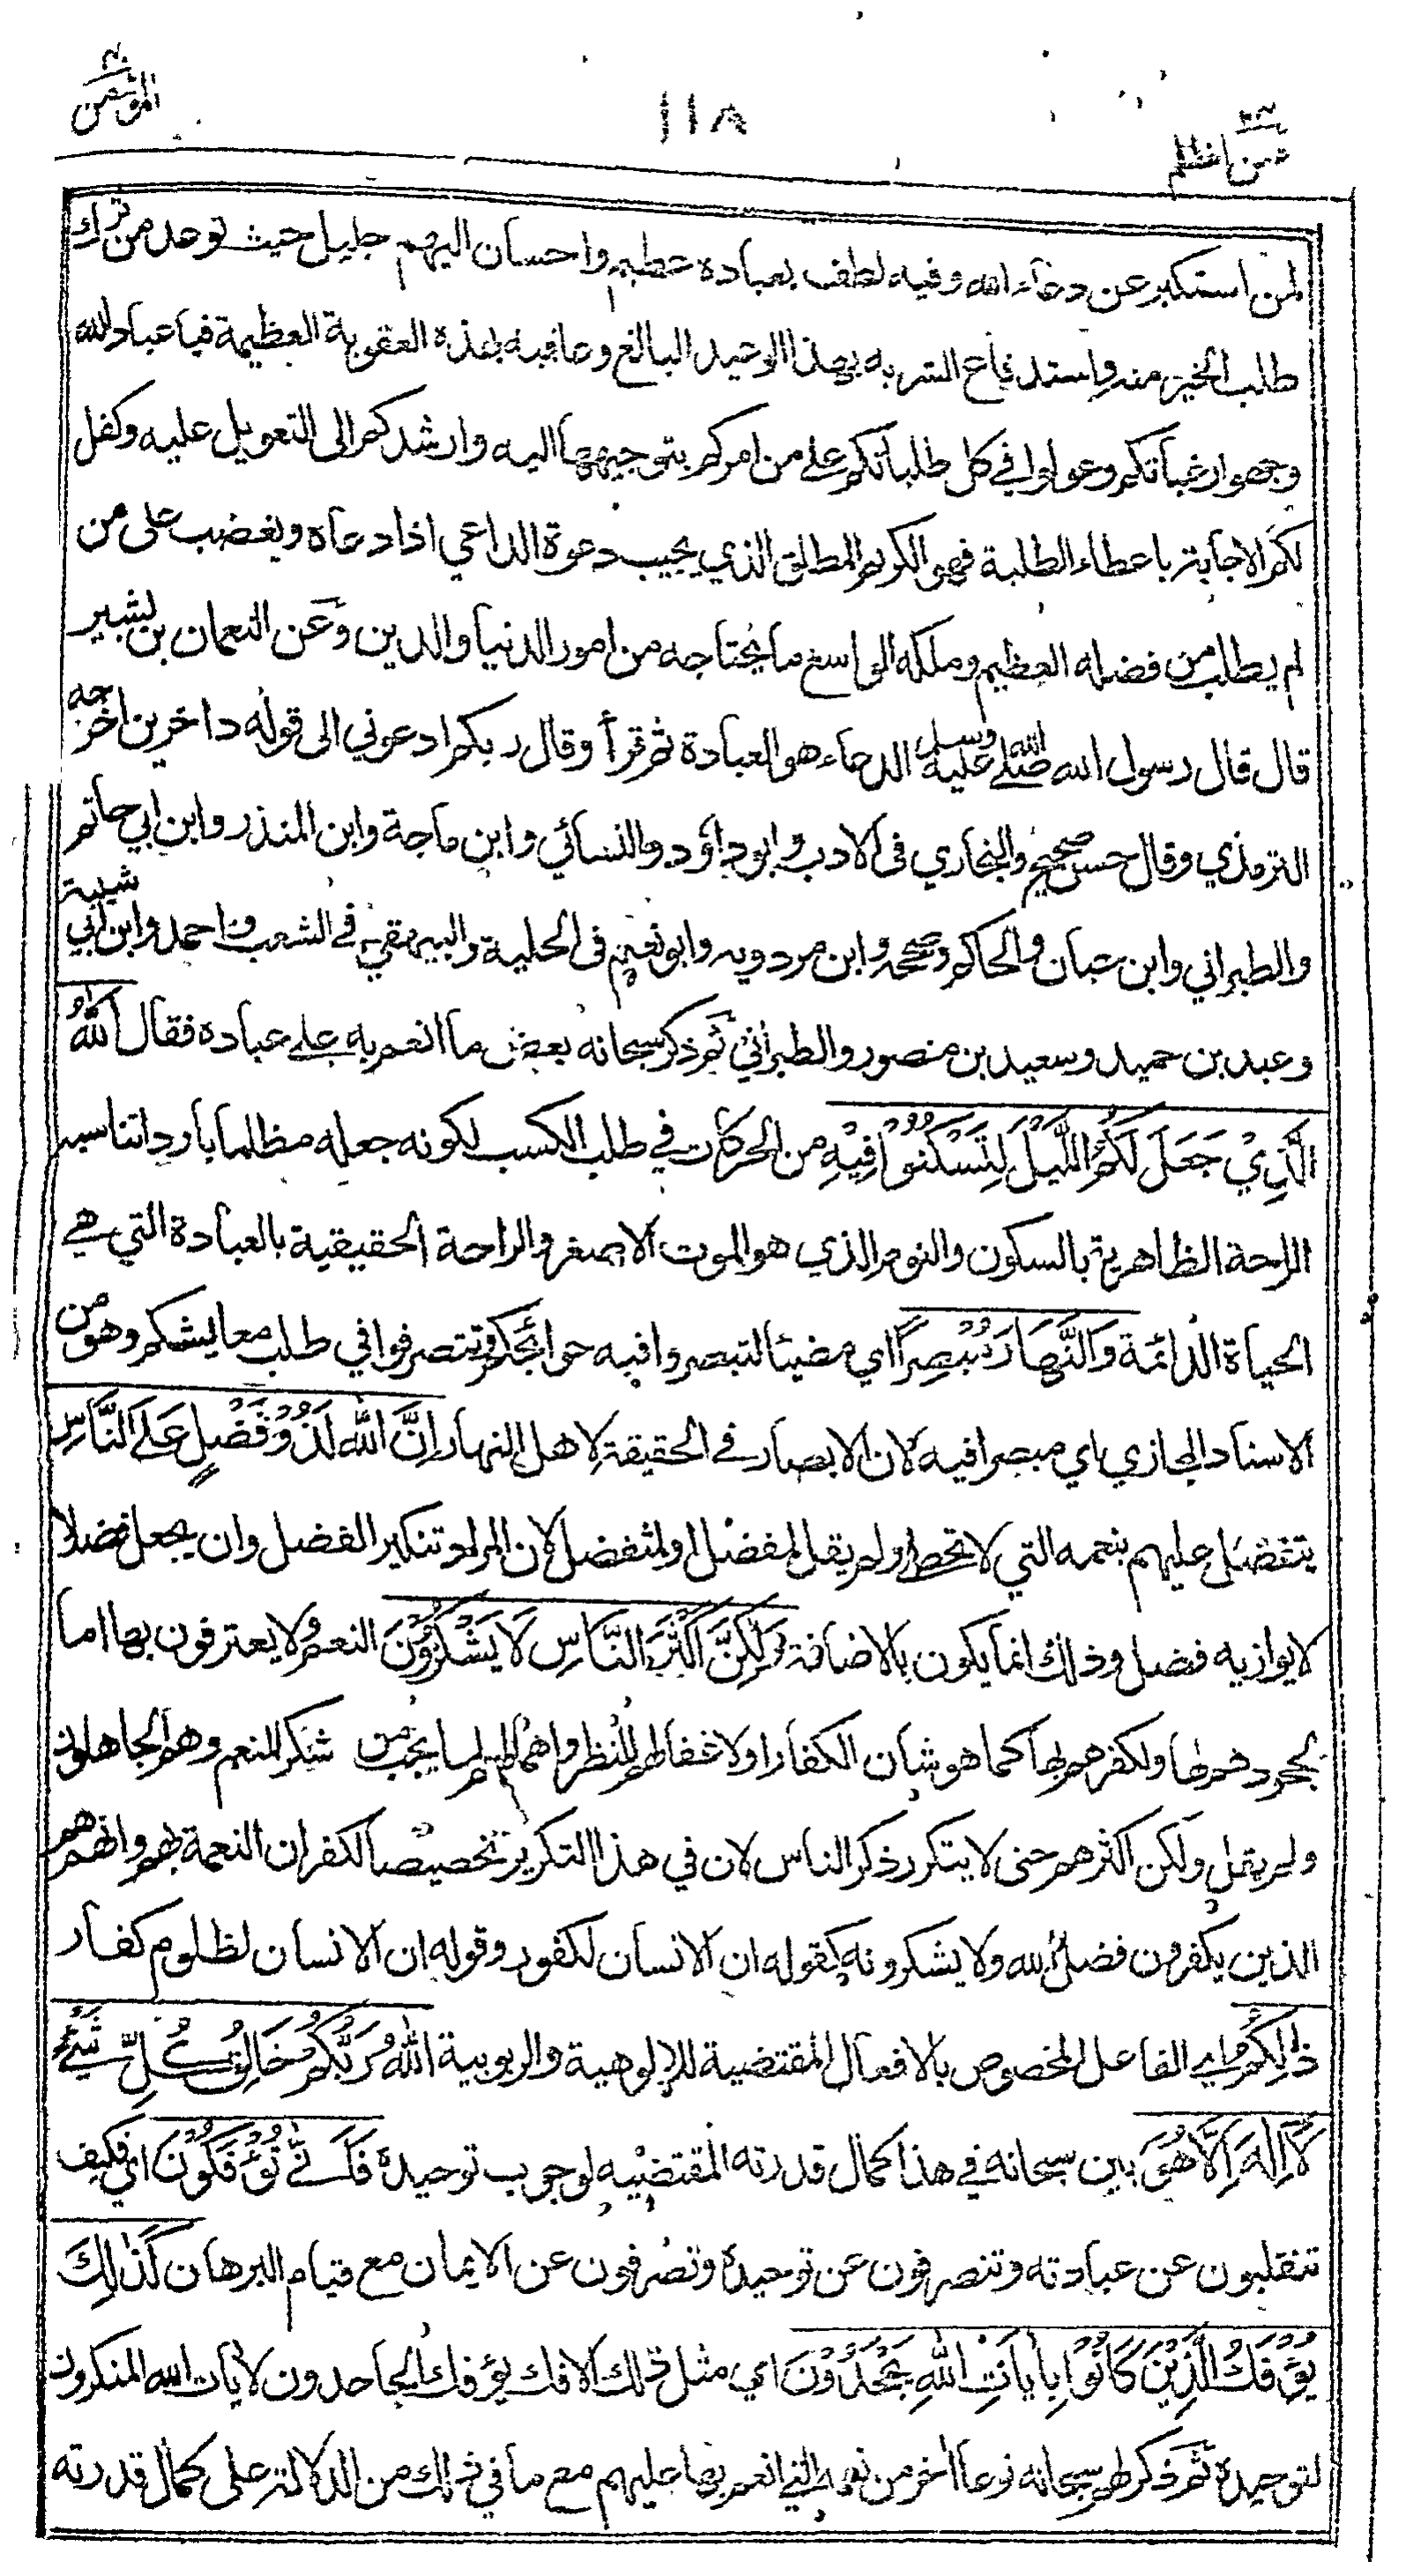 فمن اظلم ٢٤
١١٨
المؤمن ٤٠
لمن استكبر عن دعاء الله وفيه لطف بعباده عظيم واحسان اليهم جليل حيث توعد من ترك
طلب الخير منه واستدفاع الشر به بهذا الوعيد البالغ وعاقبه بهذه العقوبة العظيمة فيا عباد الله
وجهوا رغباتكم وعولوا في كل طلباتكم على من امركم بتوجيهها اليه وارشدكم الى التعويل عليه وكفل
لكم الاجابة باعطاء الطلبة فهو الكريم المطلق الذي يجيب دعوة الداعي اذا دعاه ويغضب على من
لم يطلب من فضله العظيم وملكه الواسع ما يحتاجه من امور الدنيا والدين وَعَن النعمان بن بشير
قال قال رسول الله صلى الله عليه وسلم الدعاء هو العبادة ثم قرأ وقال ربكم ادعوني الى قوله داخرين اخرجه
الترمذي وقال حسن صحيح والبخاري فى الادب وابو داؤد والنسائي وابن ماجة وابن المنذر وابن ابي حاتم
والطبراني وابن حبان والحاكم وصححه وابن مردويه وابو نعيم فى الحلية والبيهقي في الشعب واحمد وابن ابي شيبة
وعبد بن حميد وسعيد بن منصور والطبراني ثم ذكر سبحانه بعض ما انعم به على عباده فقال اَللّٰهُ
الَّذِيْ جَعَلَ لَكُمُ اللَّيْلَ لِتَسْكُنُوْا فِيْهِ من الحركات في طلب الكسب لكونه جعله مظلما باردا تناسبه
الراحة الظاهرية بالسكون والنوم الذي هو الموت الاصغر والراحة الحقيقية بالعبادة التي هي
الحياة الدائمة وَالنَّهَارَ مُبْصِرًا اي مضيئا لتبصروا فيه حوائجكم وتتصرفوا في طلب معايشكم وهو من
الاسناد المجازي اي مبصرا فيه لان الابصار في الحقيقة لاهل النهار اِنَّ اللّٰهَ لَذُوْ فَضْلٍ عَلَى النَّاسِ
يتفضل عليهم بنعمه التي لا تحصى ولم يقل لمفضل او لمتفضل لان المراد تنكير الفضل وان يجعل فضلا
لا يوازيه فضل وذلك انما يكون بالاضافة وَلٰكِنَّ اَكْثَرَ النَّاسِ لَا يَشْكُرُوْنَ النعم ولا يعترفون بها اما
لجحودهم لها ولكفرهم بها كما هو شان الكفار او لاغفالهم للنظر واهمالهم لما يجب من شكر المنعم وهم الجاهلون
ولم يقل ولكن اكثرهم حتى لا يتكرر ذكر الناس لان في هذا التكرير تخصيصا لكفران النعمة بهم وانهم هم
الذين يكفرون فضل الله ولا يشكرونه كقوله ان الانسان لكفور وقوله ان الانسان لظلوم كفار
ذٰلِكُمُ اي الفاعل المخصوص بالافعال المقتضية للالوهية والربوبية اللّٰهُ رَبُّكُمْ خَالِقُ كُلِّ شَيْءٍ
لَا اِلٰهَ اِلَّا هُوَ بين سبحانه في هذا كمال قدرته المقتضيه لوجوب توحيده فَاَنّٰى تُؤْفَكُوْنَ اي فكيف
تنقلبون عن عبادته وتنصرفون عن توحيده وتصرفون عن الايمان مع قيام البرهان كَذٰلِكَ
يُؤْفَكُ الَّذِيْنَ كَانُوْا بِاٰيَاتِ اللّٰهِ يَجْحَدُوْنَ اي مثل ذلك الافك يؤفك الجاحدون لايات الله المنكرون
لتوحيده ثم ذكر لهم سبحانه نوعا اخر من نعمه التي انعم بها عليهم مع ما في ذلك من الدلالة على كمال قدرته